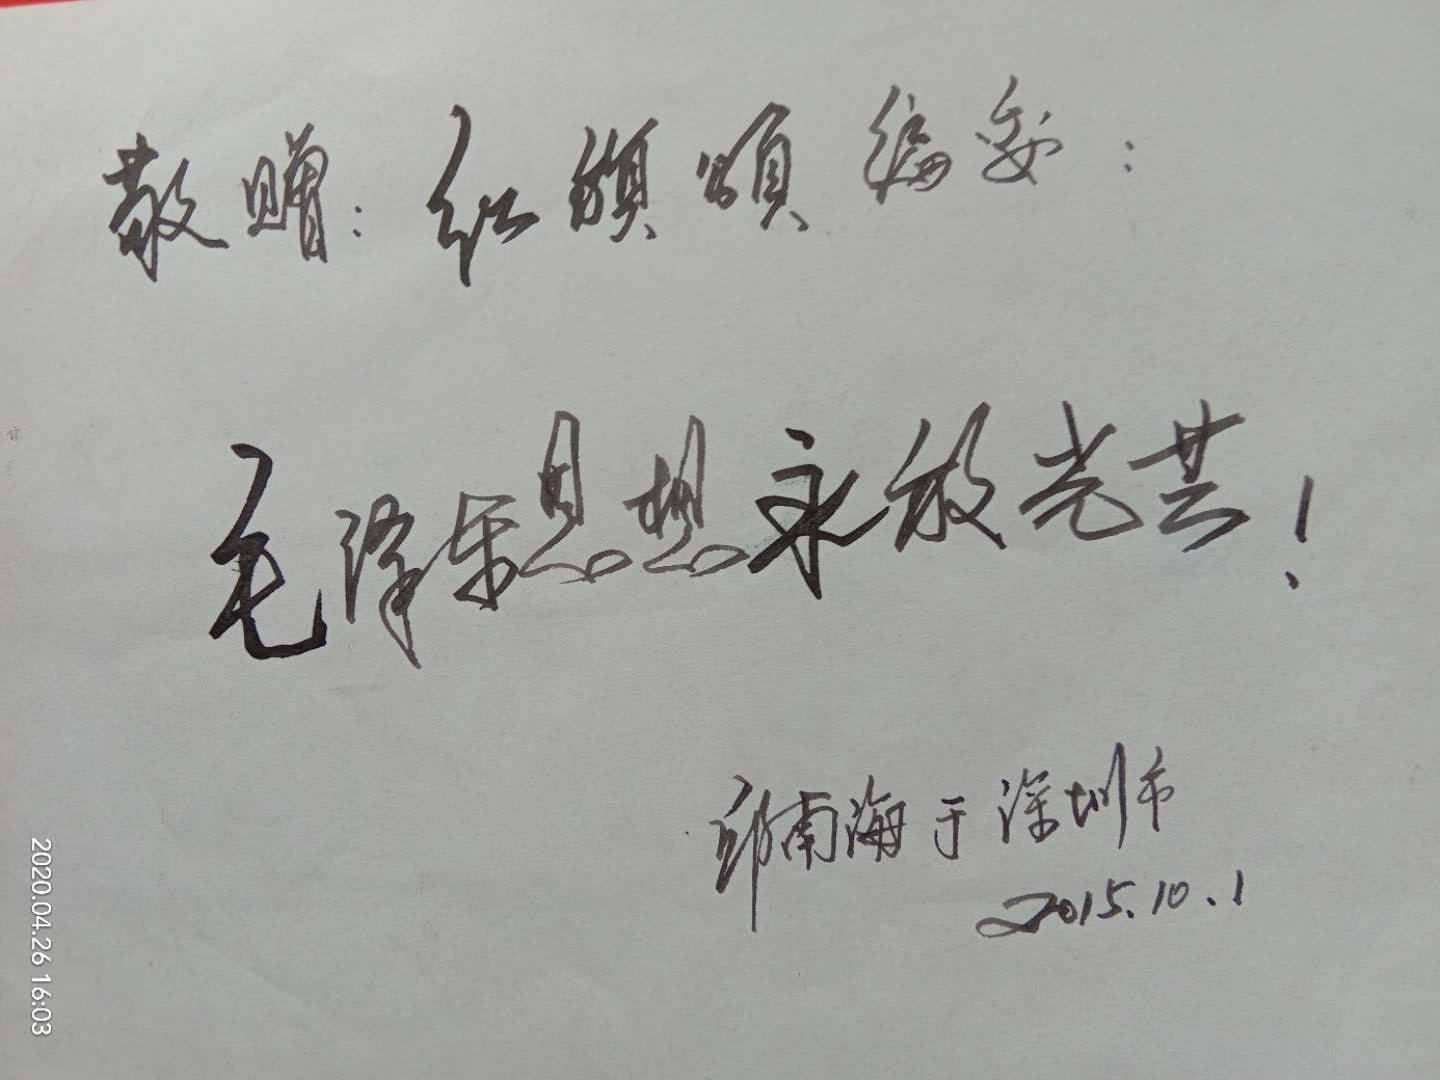 敬赠：红旗颂编委：
毛泽东思想永放光芒！
邱南海于深圳市
2015.10.1
2020.04.26 16:03